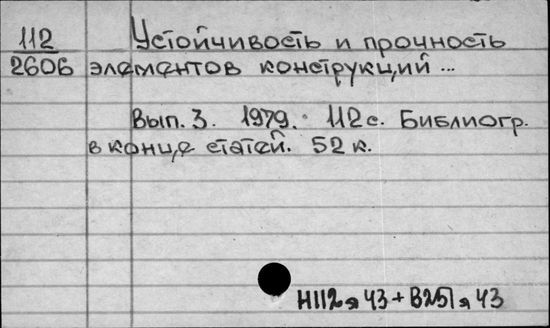 112
2606
Устойчивость и прочность
элементов конструкций ...
Вып. 3. 1979. 112 с. Библиогр.
в конце статей. 52 к.
Н112я43 + В251я43